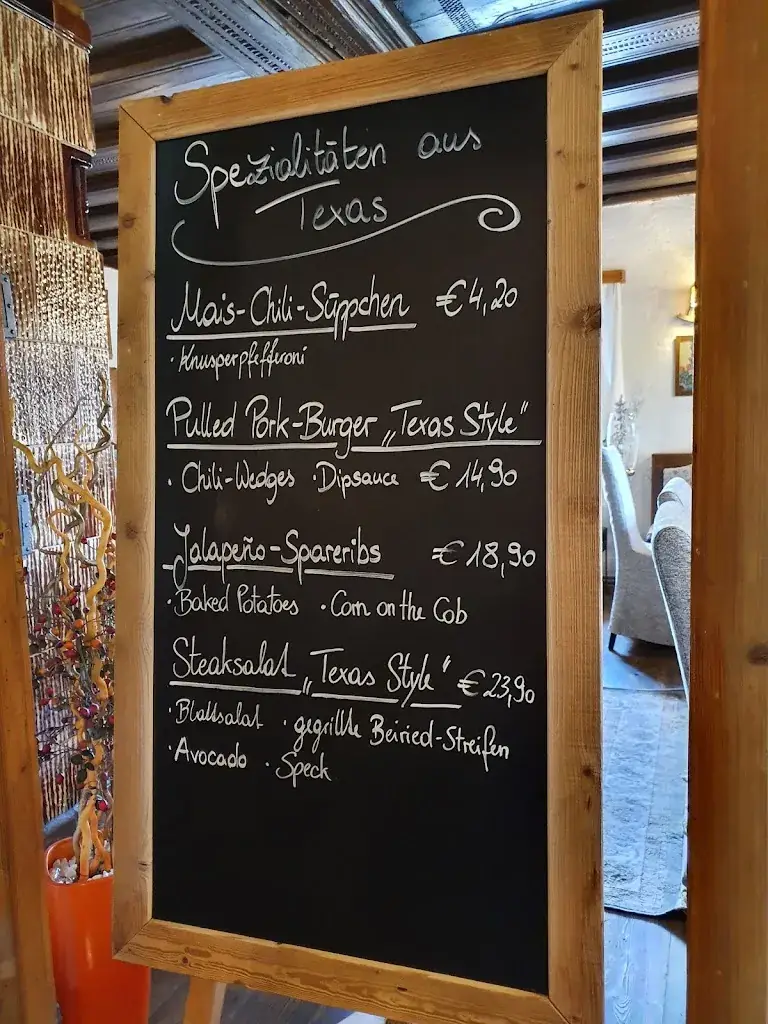 Spezialitäten aus
Texas
Mais-Chili-Süppchen €4,20
· Knusperpfefferoni
Pulled Pork-Burger „Texas Style"
· Chili-Wedges · Dipsauce €14,90
Jalapeño-Spareribs €18,90
· Baked Potatoes · Corn on the Cob
Steaksalat „Texas Style" €23,90
· Blattsalat · gegrillte Beiried-Streifen
· Avocado · Speck